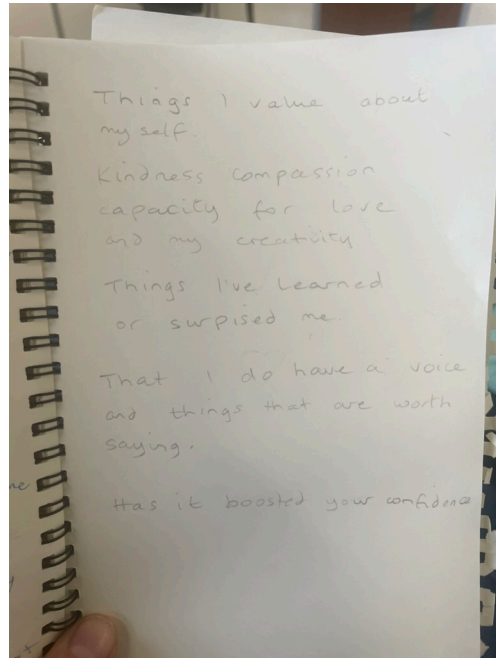 Things I value about
my self.
Kindness compassion
capacity for love
and my creativity
Things I've learned
or surpised me.
That I do have a voice
and things that are worth
saying.
Has it boosted your confidence